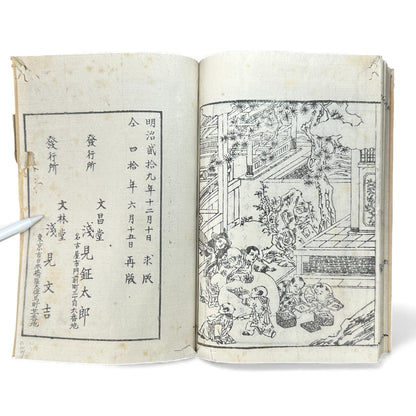 明治貳拾九年十二月十日 求版
仝 四拾年六月十五日 再版
發行所
文昌堂
淺見鉦太郎
名古屋市門前町三丁目
發行所
文林堂
淺見文吉
東京市日本橋區